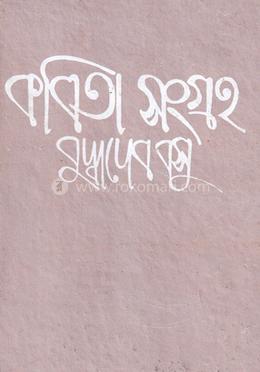 কবিতা সংগ্রহ
বুদ্ধদেব বসু
www.rokomari.com